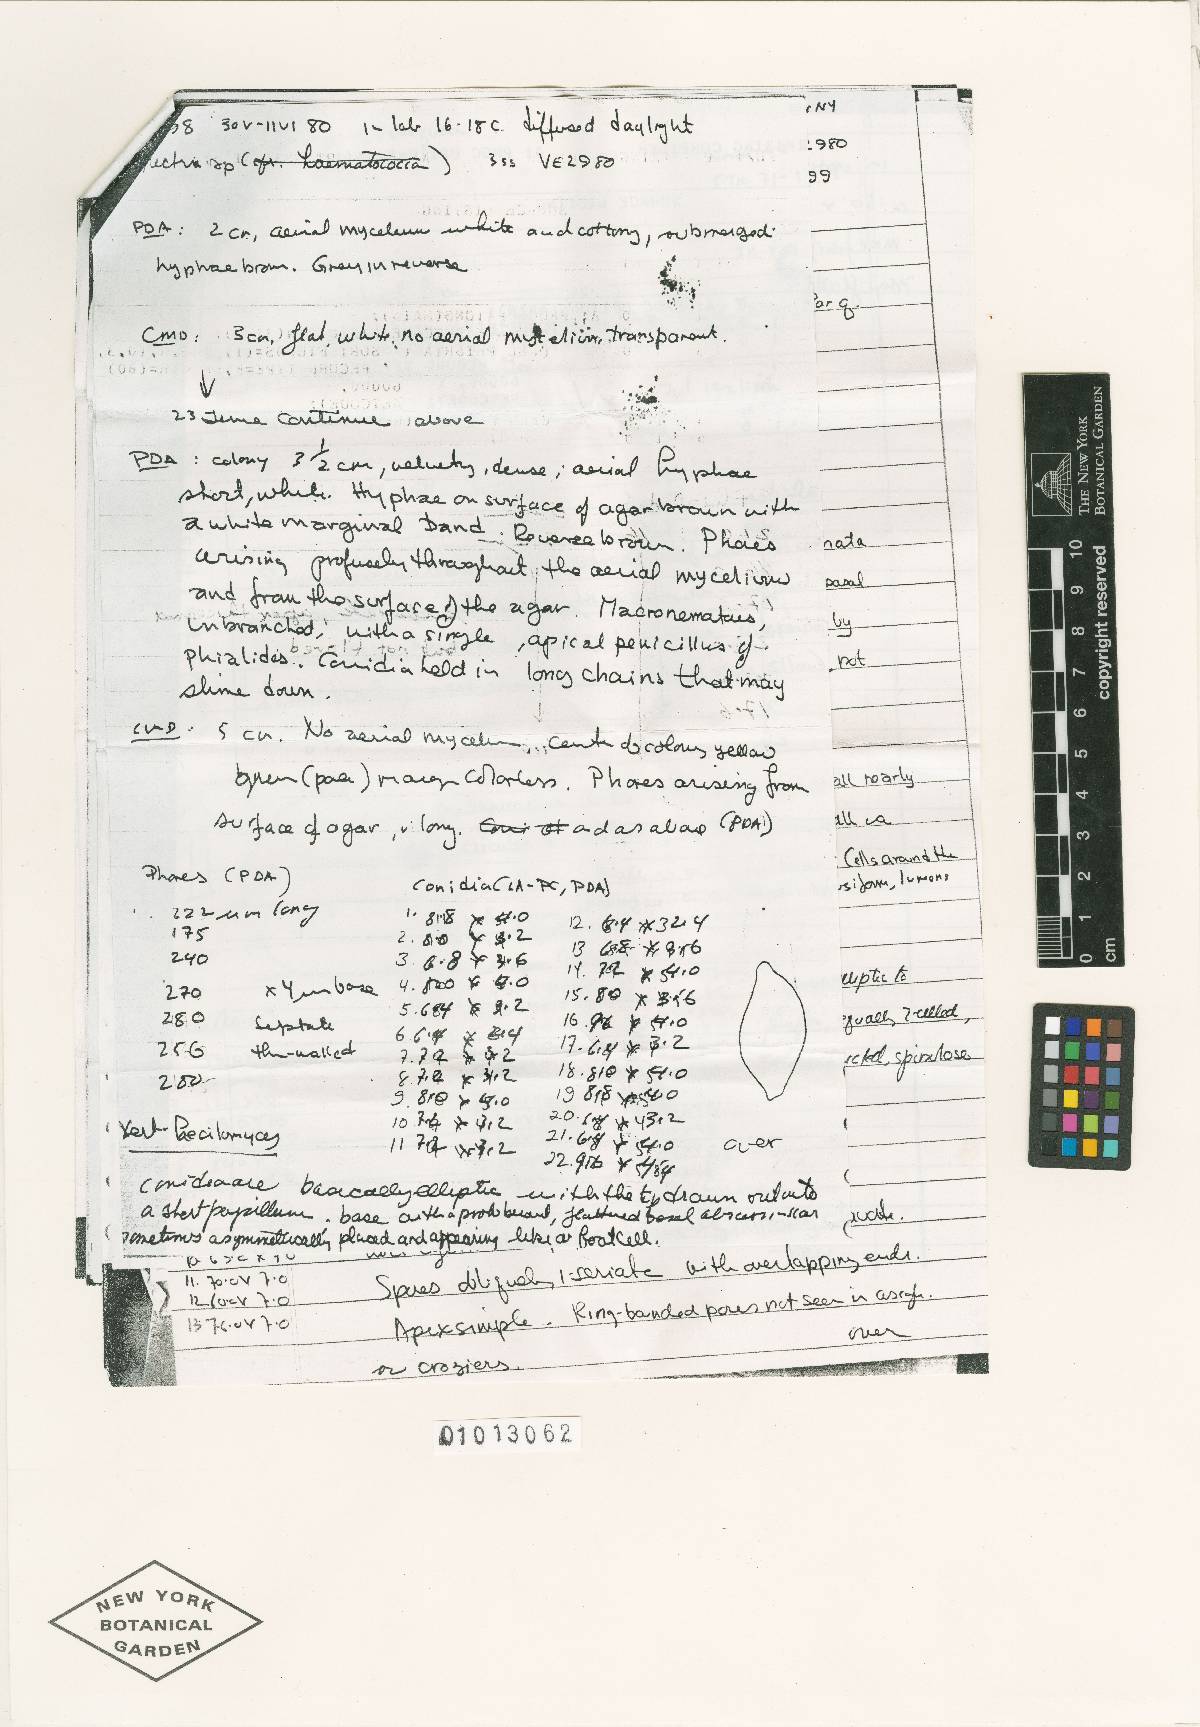 38 30V-11VI 80 in lab 16-18C. diffused daylight
sp (cfr. haematococca) 3ss VE2980
PDA: 2 cm, aerial mycelium white and cottony, submerged
hyphae brown. Grey in reverse
CMD: 3cm, flat, white, no aerial mycelium, transparent.
23 June continue above
PDA: colony 3 1/2 cm, velvety, dense; aerial hyphae
short, white. Hyphae on surface of agar brown with
a white marginal band. Reverse brown. Phores
arising profusely throughout the aerial mycelium
and from the surface of the agar. Macronematous,
unbranched, with a single, apical penicillus of
phialides. Conidia held in long chains that may
slime down.
CMD. 5 cm. No aerial mycelium, center of colony yellow
green (pale) margin colorless. Phores arising from
surface of agar, v. long. and as above (PDA)
Phores (PDA)
222 um long
175
240
270 x 4 um base
280 Septate
256 thin-walled
280
Conidia (LA-PC, PDA)
1. 8.8 x 4.0
2. 8.0 x 3.2
3. 6.8 x 3.6
4. 8.0 x 4.0
5. 6.4 x 3.2
6. 6.4 x 2.4
7. 7.2 x 3.2
8. 7.2 x 3.2
9. 8.0 x 4.0
10. 7.2 x 3.2
11. 7.2 x 3.2
12. 6.4 x 2.4
13. 6.8 x 3.6
14. 7.2 x 4.0
15. 8.0 x 3.6
16. x 4.0
17. 6.4 x 3.2
18. 8.0 x 4.0
19. 8.8 x 4.0
20. 6.8 x 3.2
21. 6.8 x 4.0
22. 9.6 x
over
Vert-Paecilomyces
Conidia are basically elliptic with the tip drawn out into
a short papillum. base with a protuberant, flattened basal abscission-scar
sometimes asymmetrically placed and appearing like a foot cell.
NY
1980
99
Parq.
nata
basal
by
not
all nearly
all ca
Cells around the
usiform, lumens
elliptic to
equally 2-celled,
spinulose
11. 70.0 x 7.0
13 76.0 x 7.0
Spores obliquely 1-seriate with overlapping ends.
Apex simple. Ring-banded pores not seen in
over
or croziers.
01013062
NEW YORK
BOTANICAL
GARDEN
THE NEW YORK
BOTANICAL GARDEN
copyright reserved
0 1 2 3 4 5 6 7 8 9 10
cm